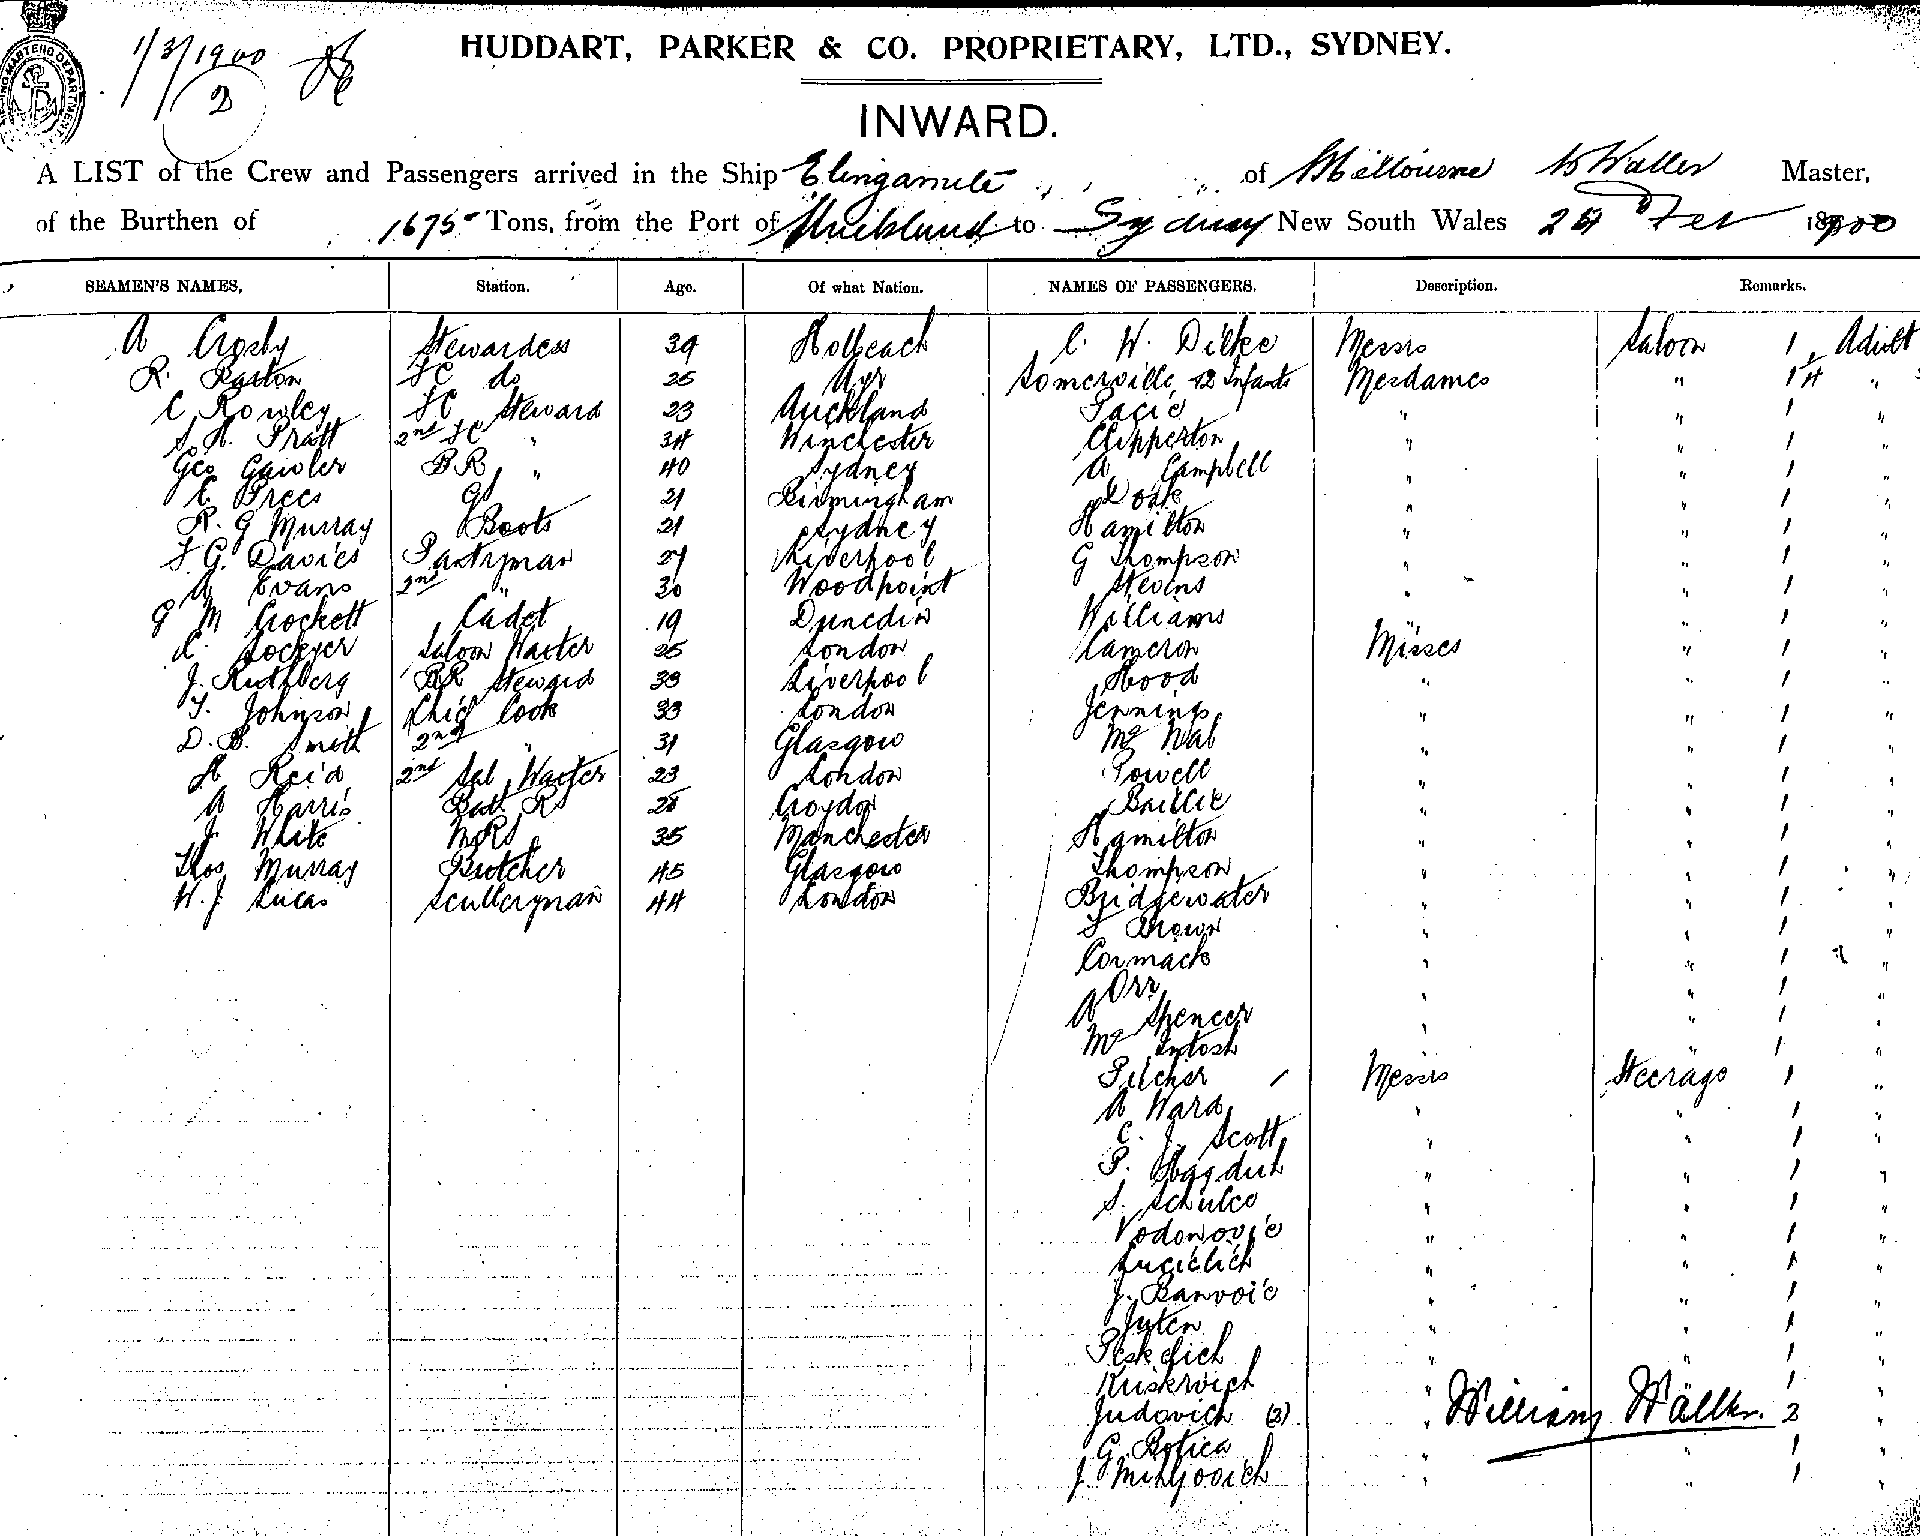 1/3/1900
2
HUDDART, PARKER & CO. PROPRIETARY, LTD., SYDNEY.
INWARD.
A LIST of the Crew and Passengers arrived in the Ship Elingamite of Melbourne W Waller Master,
of the Burthen of 1675 Tons, from the Port of Auckland to Sydney New South Wales Feb 1900
SEAMEN'S NAMES, Station. Age. Of what Nation. NAMES OF PASSENGERS. Description. Remarks.
A Crosby Stewardess 39 Holbeach C. W. Dilke Messrs Saloon 1 Adult
R. Barton FC do 25 Ayr Somerville, Infants Mesdames " 1 "
C Rowley FC Steward 23 Auckland Pacie " " 1 "
S. H. Pratt 2nd FC " 34 Winchester Clipperton " " 1 "
Geo Gawler BR " 40 Sydney A Campbell " " 1 "
E Prees GS 21 Birmingham Doak " " 1 "
R. G Murray Boots 21 Sydney Hamilton " " 1 "
F G. Davies Pantryman 27 Liverpool G Thompson " " 1 "
A Evans 2nd " 30 Woodpoint Stevens " " 1 "
G M Crockett Cadet 19 Dunedin Williams " " 1 "
L. Lockyer Saloon Waiter 25 London Cameron Misses " 1 "
J. Ruthberg BR Steward 33 Liverpool Hood " " 1 "
T. Johnson Chief Cook 33 London Jennings " " 1 "
D. B. Smith 2nd " 31 Glasgow Mc Nab " " 1 "
H Reid 2nd Sal Waiter 23 London Powell " " 1 "
A Harris Bath R 28 Croydon Baillie " " 1 "
J. White M.R.S 35 Manchester Hamilton " " 1 "
Thos Murray Butcher 45 Glasgow Thompson " " 1 "
W. J. Lucas Sculleryman 44 London Bridgewater " " 1 "
F Brown " " 1 "
Cormack " " 1 "
Orr " " 1 "
A Spencer " " 1 "
Mc Intosh " " 1 "
Pilcher Messrs Steerage 1 "
A Ward " " 1 "
C. J. Scott " " 1 "
P. " " 1 "
S. Schulco " " 1 "
Vodonovic " " 1 "
Lucielich " " 1 "
J. Banvoic " " 1 "
Juten " " 1 "
" " 1 "
" 1 "
Judovich " William Waller. "
G. Botica " " 1 "
J. Mihljovich " " 1 "